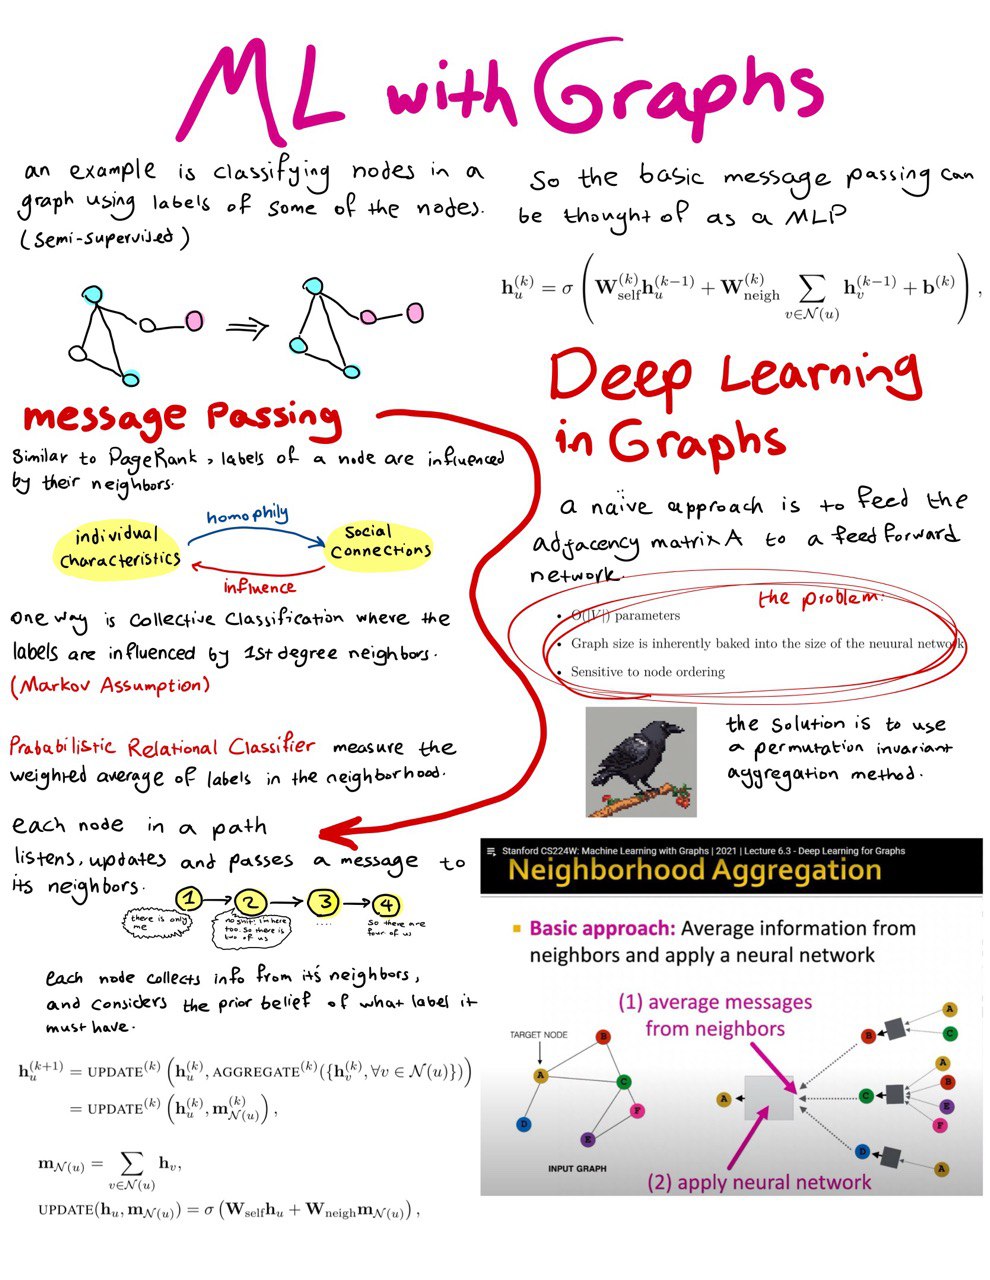 ML with Graphs
an example is classifying nodes in a
graph using labels of some of the nodes.
(semi-supervised)
message Passing
Similar to PageRank, labels of a node are influenced
by their neighbors.
individual
characteristics
homophily
Social
Connections
influence
One way is collective classification where the
labels are influenced by 1st degree neighbors.
(Markov Assumption)
Prababilistic Relational Classifier measure the
weighted average of labels in the neighborhood.
each node in a path
listens, updates and passes a message to
its neighbors.
1 → 2 → 3 → 4
there is only
me
no shit! i'm here
too. So there is
two of us
....
So there are
four of us
each node collects info from it's neighbors,
and considers the prior belief of what label it
must have.
h_u^{(k+1)} = UPDATE^{(k)} (h_u^{(k)}, AGGREGATE^{(k)}({h_v^{(k)}, ∀v ∈ N(u)}))
= UPDATE^{(k)} (h_u^{(k)}, m_{N(u)}^{(k)}),
m_{N(u)} = ∑_{v∈N(u)} h_v,
UPDATE(h_u, m_{N(u)}) = σ (W_self h_u + W_neigh m_{N(u)}),
So the basic message passing can
be thought of as a MLP
h_u^{(k)} = σ (W_self^{(k)} h_u^{(k-1)} + W_neigh^{(k)} ∑_{v∈N(u)} h_v^{(k-1)} + b^{(k)}),
Deep Learning
in Graphs
a naïve approach is to feed the
adjacency matrix A to a feed forward
network.
the problem:
• O(|V|) parameters
• Graph size is inherently baked into the size of the neuural network
• Sensitive to node ordering
the solution is to use
a permutation invariant
aggregation method.
Stanford CS224W: Machine Learning with Graphs | 2021 | Lecture 6.3 - Deep Learning for Graphs
Neighborhood Aggregation
Basic approach: Average information from
neighbors and apply a neural network
(1) average messages
from neighbors
TARGET NODE
A
B
C
D
E
F
INPUT GRAPH
A
B
A
C
C
A
B
E
F
D
A
(2) apply neural network